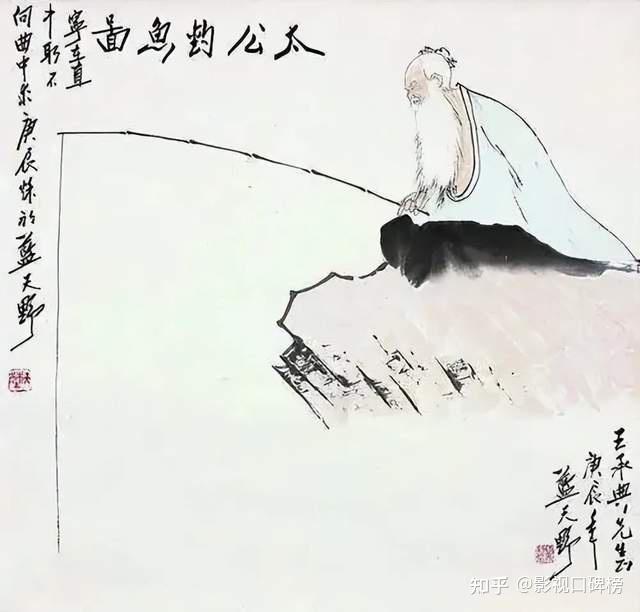 太公钓鱼图
寧在直
中取不
向曲中求庚辰秋初藍天野
王承典先生正
庚辰年
藍天野
知乎 @影视口碑榜